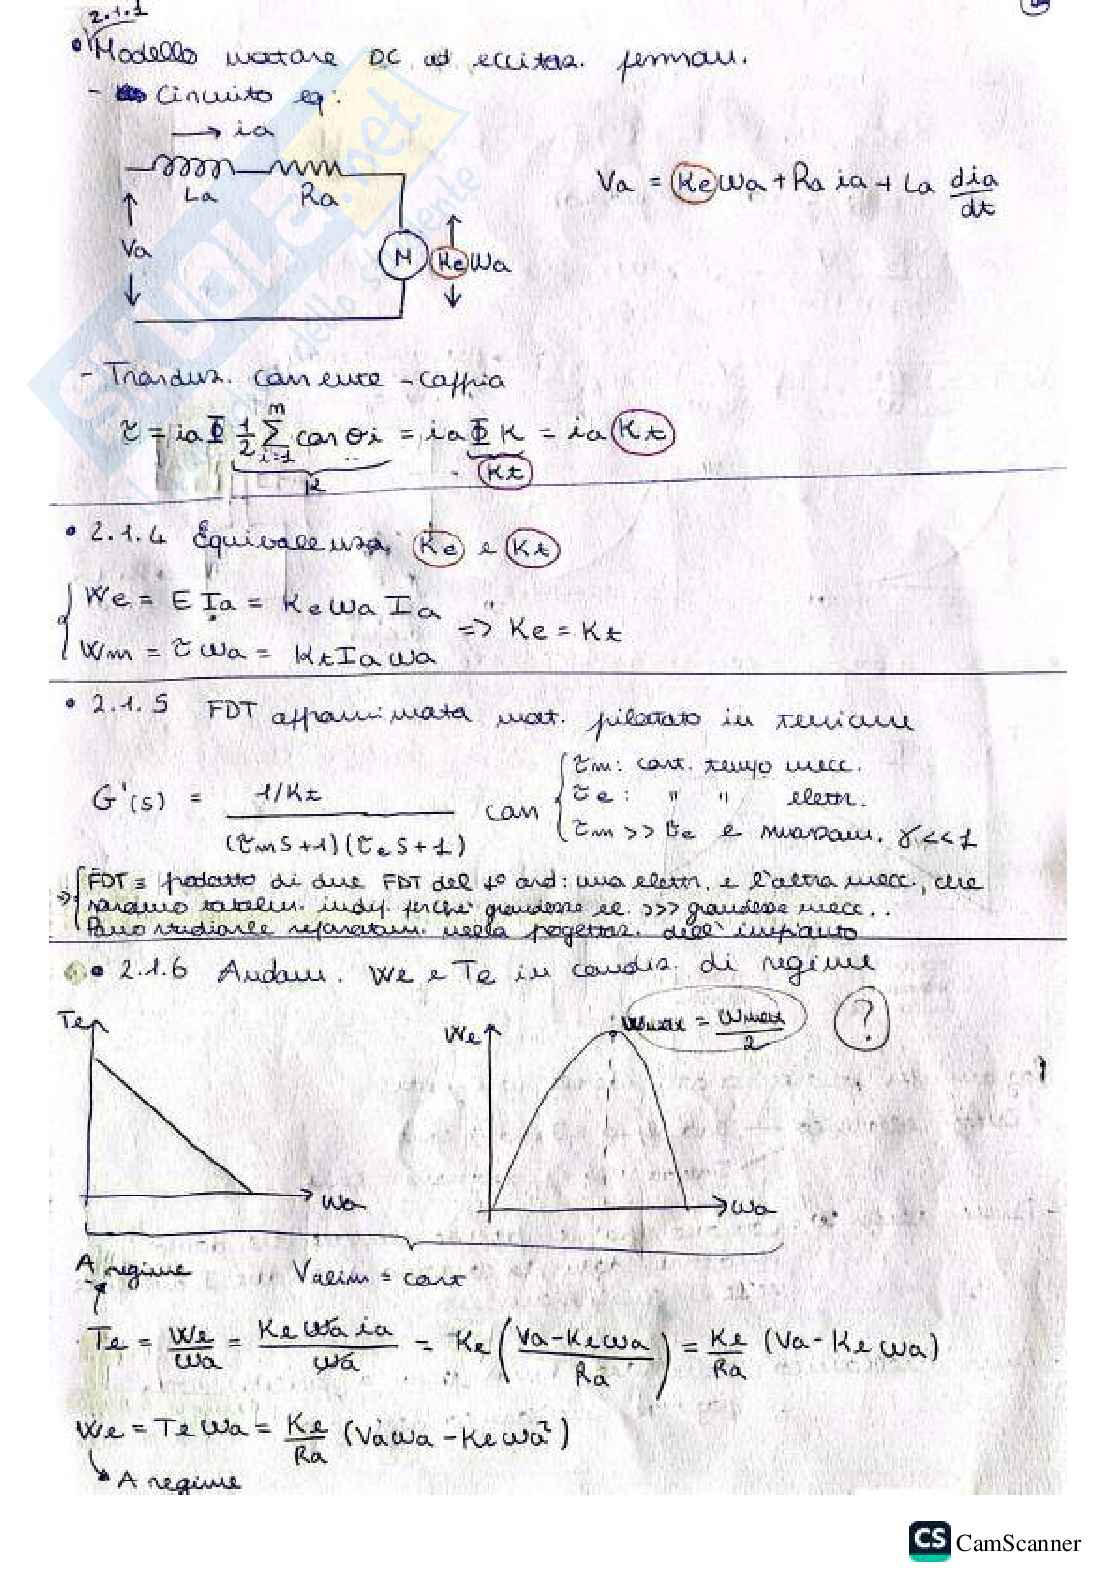 2.1.1
• Modello motore DC ad eccitaz. perman.
- Circuito eq:
→ ia
La Ra
Va = Ke Wa + Ra ia + La dia/dt
Va
M Ke Wa
- Trasduz. corrente - coppia
τ = ia Φ 1/2 Σ i=1 m cos θi = ia Φ K = ia Kt
K
Kt
• 2.1.4 Equivalenza Ke e Kt
We = E Ia = Ke Wa Ia
⇒ Ke = Kt
Wm = τ Wa = Kt Ia Wa
• 2.1.5 FDT approssimata mot. pilotato in tensione
G'(s) = 1/Kt / (τm s + 1)(τe s + 1) con
τm: cost. tempo mecc.
τe: " " elettr.
τm >> τe e smorzam. γ << 1
⇒ FDT ≡ prodotto di due FDT del 1° ord: una elettr. e l'altra mecc., che
saranno totalm. indip. perché grandezze el. >>> grandezze mecc..
Posso studiarle separatam. nella progettaz. dell'impianto
• 2.1.6 Andam. We e Te in condiz. di regime
Te
We
Wmax = Wmax/2
?
Wa
Wa
A regime
Valim = cost
Te = We/Wa = Ke Wa ia / Wa = Ke (Va - Ke Wa / Ra) = Ke/Ra (Va - Ke Wa)
We = Te Wa = Ke/Ra (Va Wa - Ke Wa²)
A regime
CS CamScanner